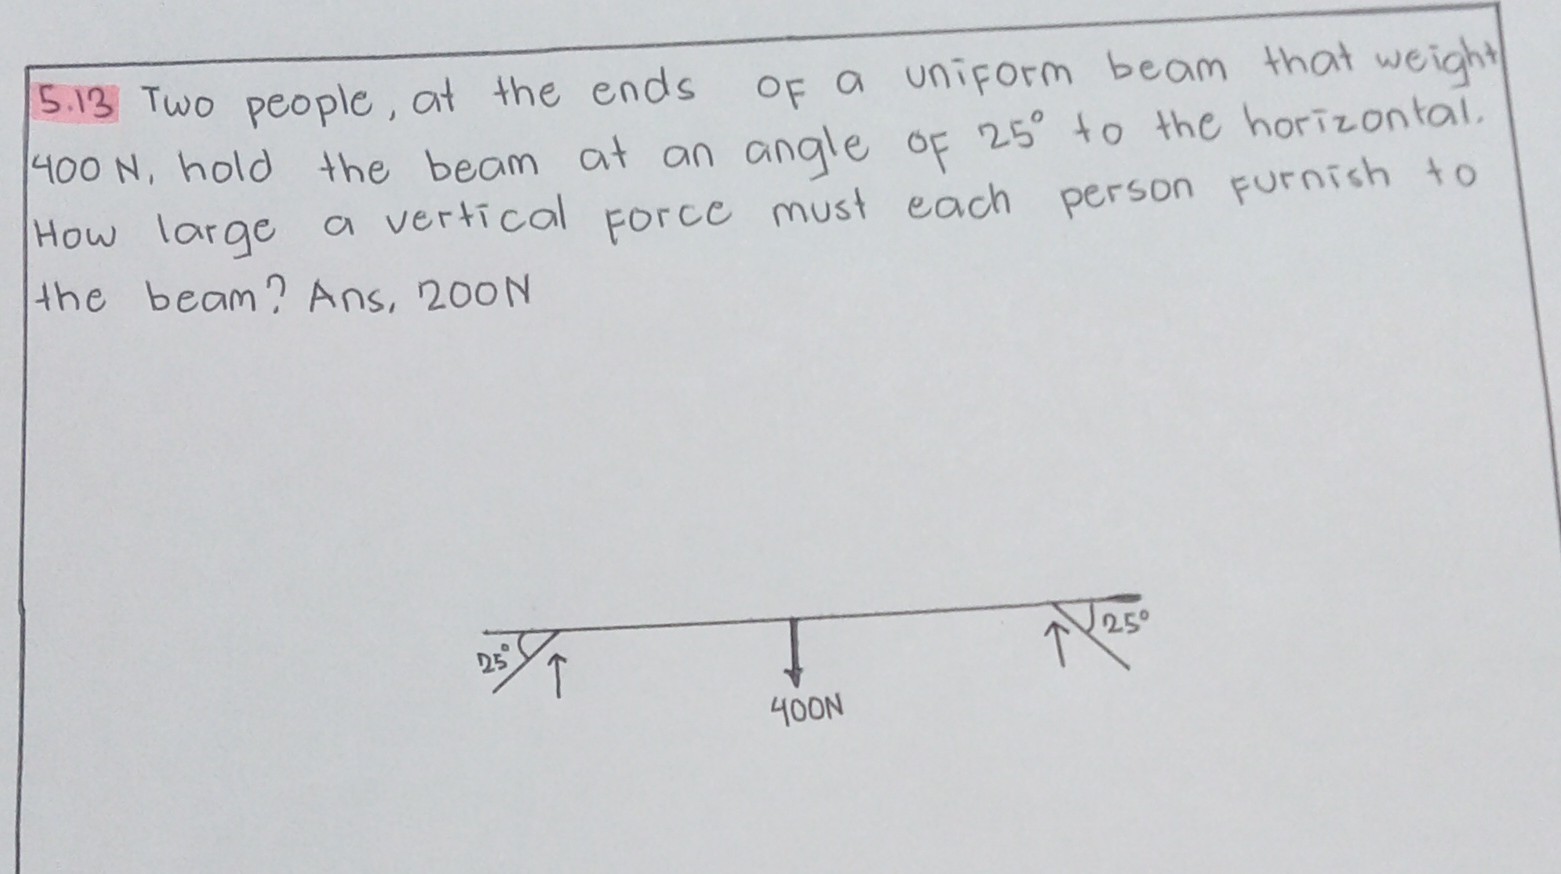 5.13 Two people, at the ends of a uniform beam that weight
400 N, hold the beam at an angle of 25° to the horizontal.
How large a vertical force must each person furnish to
the beam? Ans, 200N
25°
25°
400N